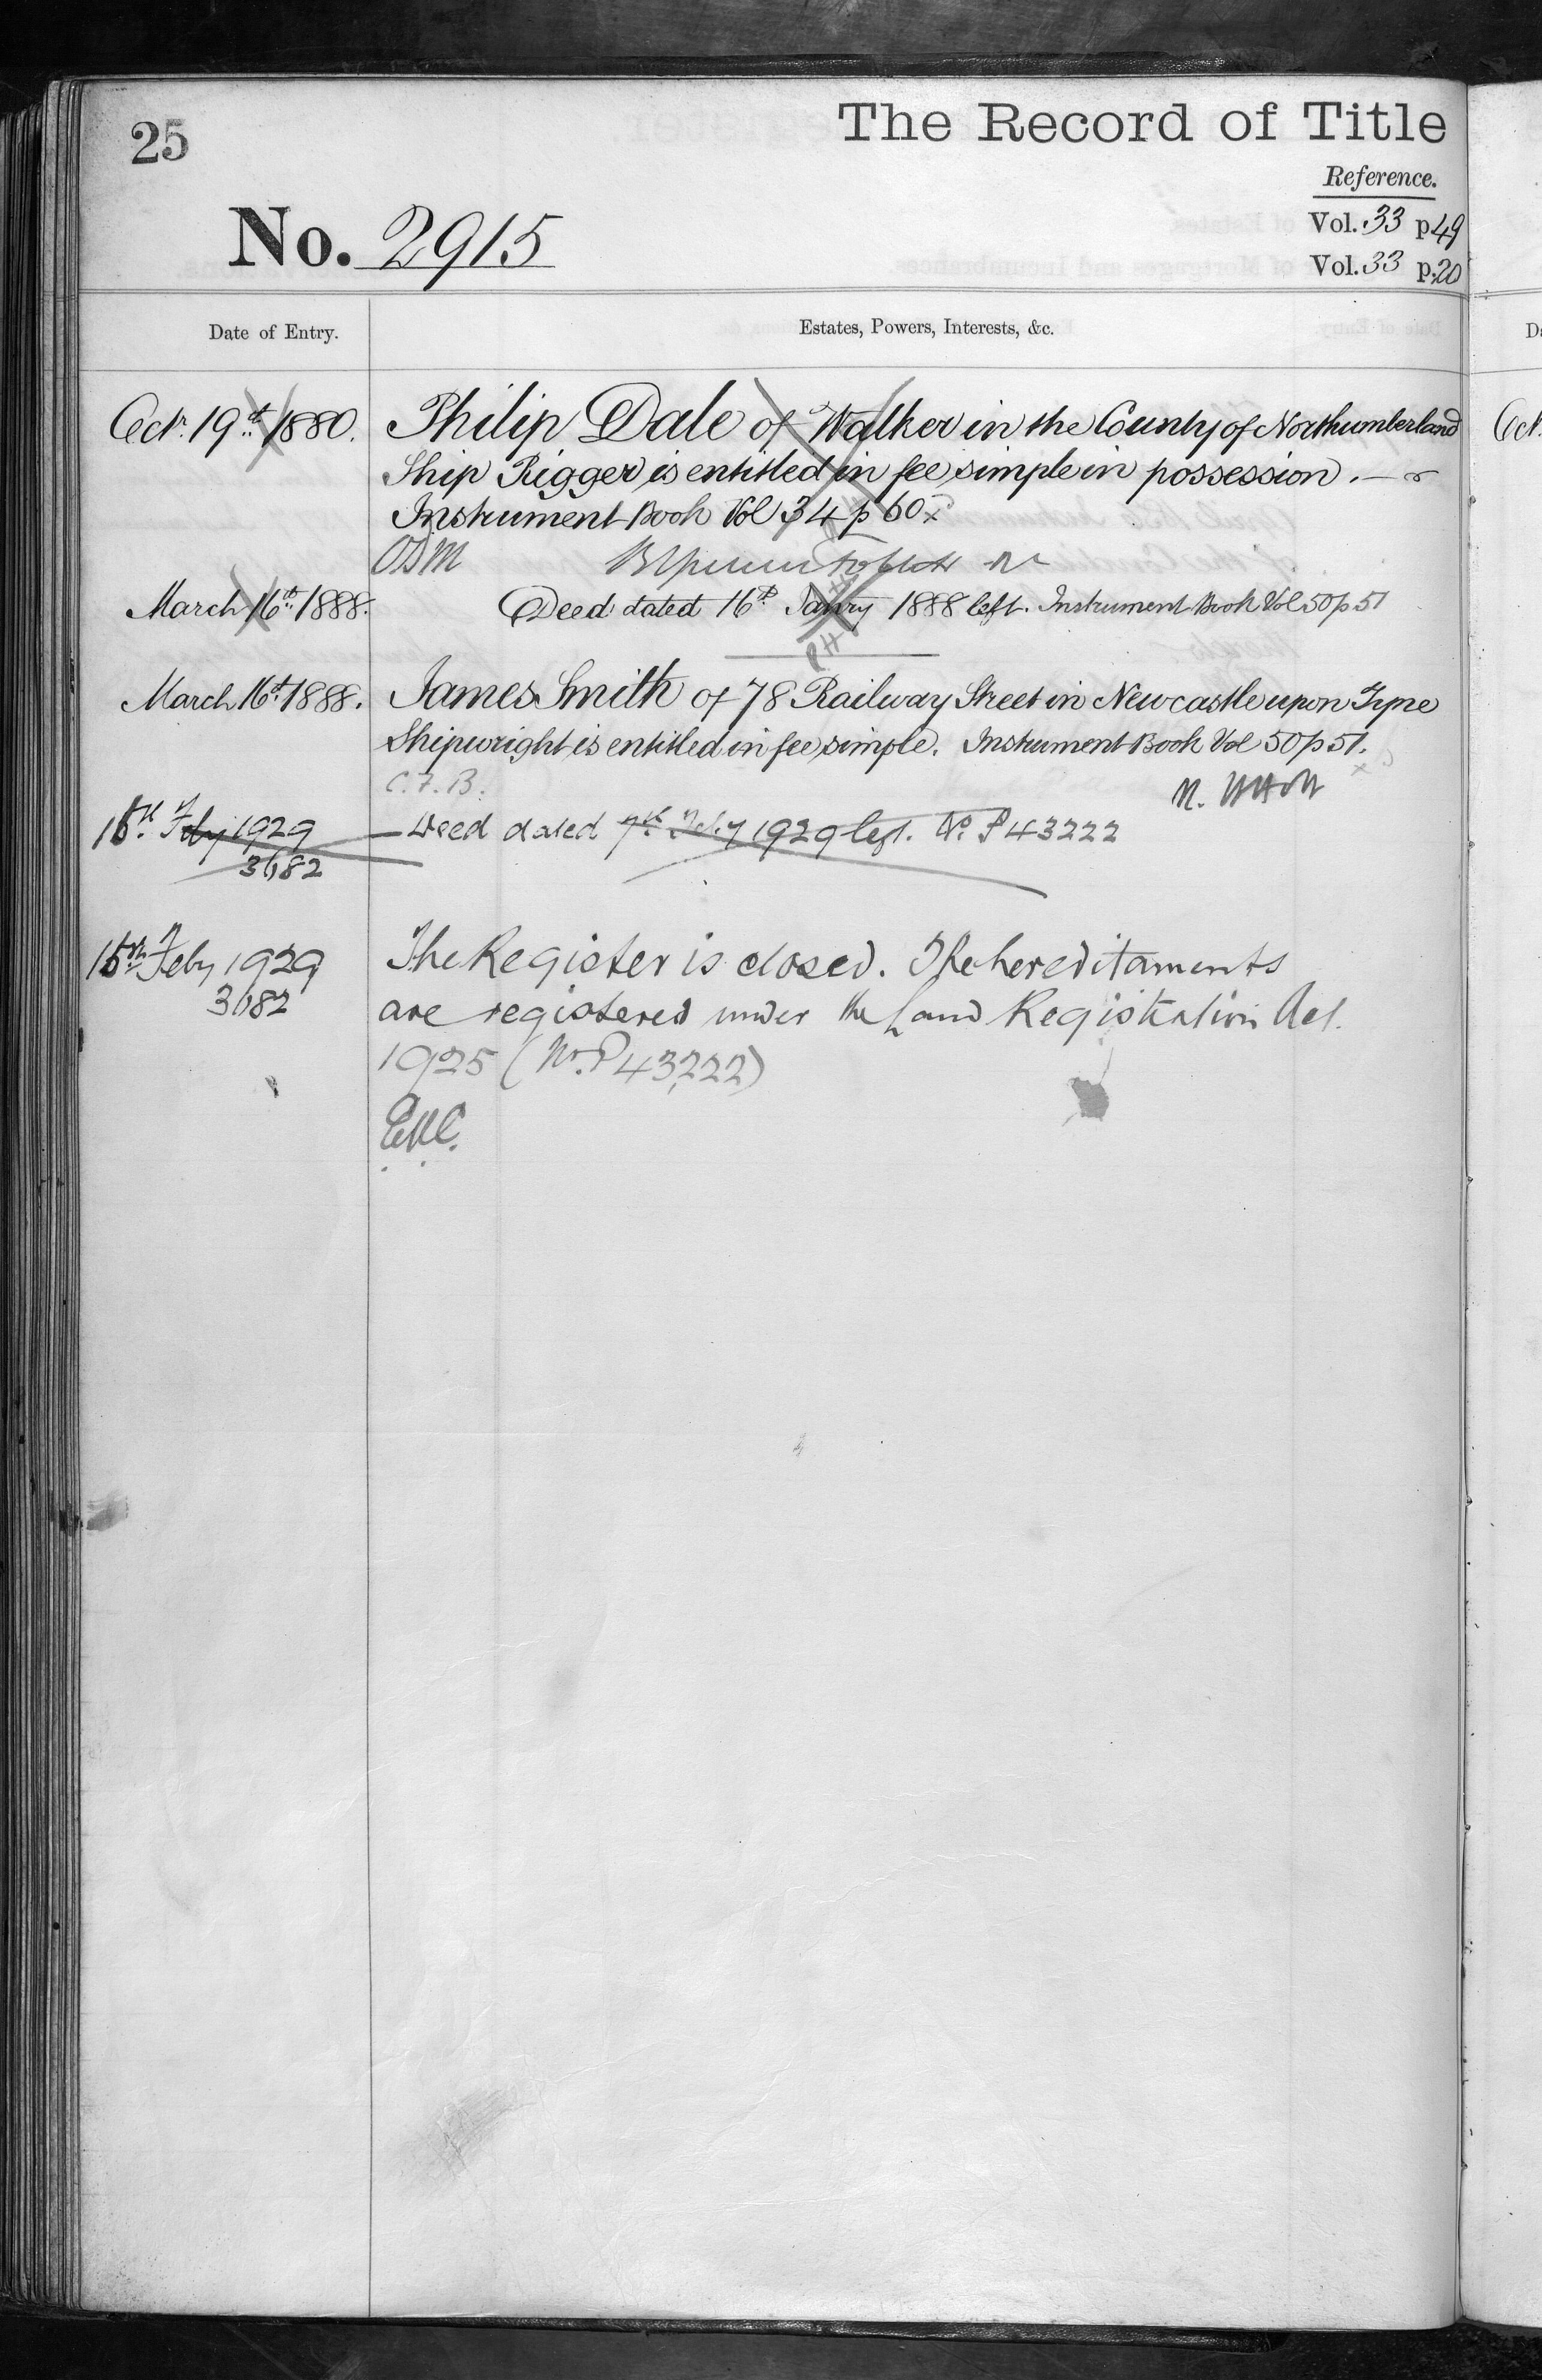 25
The Record of Title
Reference.
No. 2915
Vol. 33 p 49
Vol. 33 p. 20
Date of Entry.
Estates, Powers, Interests, &c.
Oct. 19th 1880.
Philip Dale of Walker in the County of Northumberland
Ship Rigger is entitled in fee simple in possession.
Instrument Book Vol 34 p 60
March 16th 1888.
Deed dated 16th Janry 1888 left. Instrument Book Vol 50 p 51
March 16th 1888.
James Smith of 78 Railway Street in Newcastle upon Tyne
Shipwright is entitled in fee simple. Instrument Book Vol 50 p 51.
C.F.B.
15th Feby 1929
Deed dated 7th Feby 1929 left. No. P 43222
3682
15th Feby 1929
The Register is closed. The hereditaments
3682
are registered under the Land Registration Act.
1925 (No. P 43222)